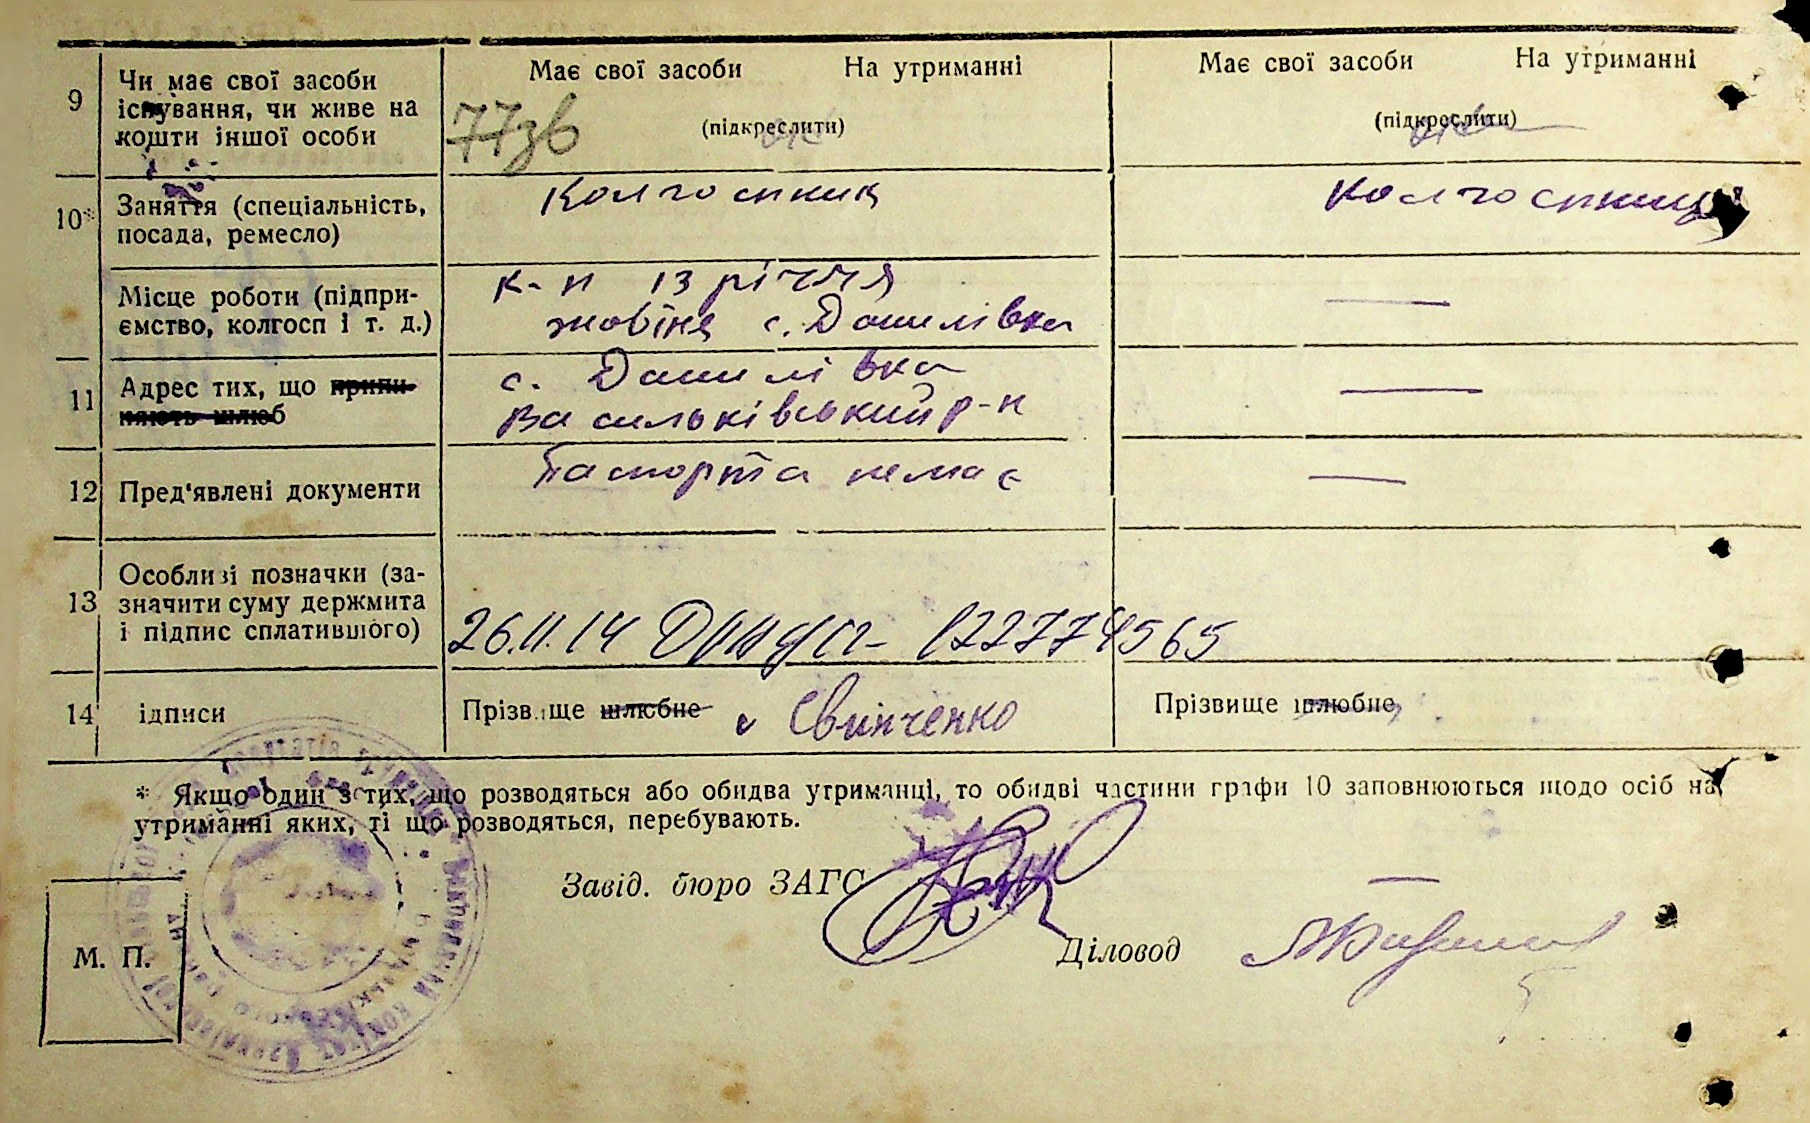 9 Чи має свої засоби існування, чи живе на кошти іншої особи
Має свої засоби На утриманні
(підкреслити)
77зв
Має свої засоби На утриманні
(підкреслити)
10* Заняття (спеціальність, посада, ремесло)
Колгоспник
Колгоспниця
Місце роботи (підпри-
ємство, колгосп і т. д.)
к-п 13 річчя
жовтня с. Данилівка
11 Адрес тих, що припи-
няють шлюб
с. Данилівка
Васильківський р-н
12 Пред'явлені документи
Паспорта немає
13 Особливі позначки (за-
значити суму держмита
і підпис сплатившого)
26.11.14
14 ідписи
Прізвище шлюбне
Свинченко
Прізвище шлюбне
* Якщо один з тих, що розводяться або обидва утриманці, то обидві частини графи 10 заповнюються щодо осіб на
утриманні яких, ті що розводяться, перебувають.
Завід. бюро ЗАГС
М. П.
Діловод